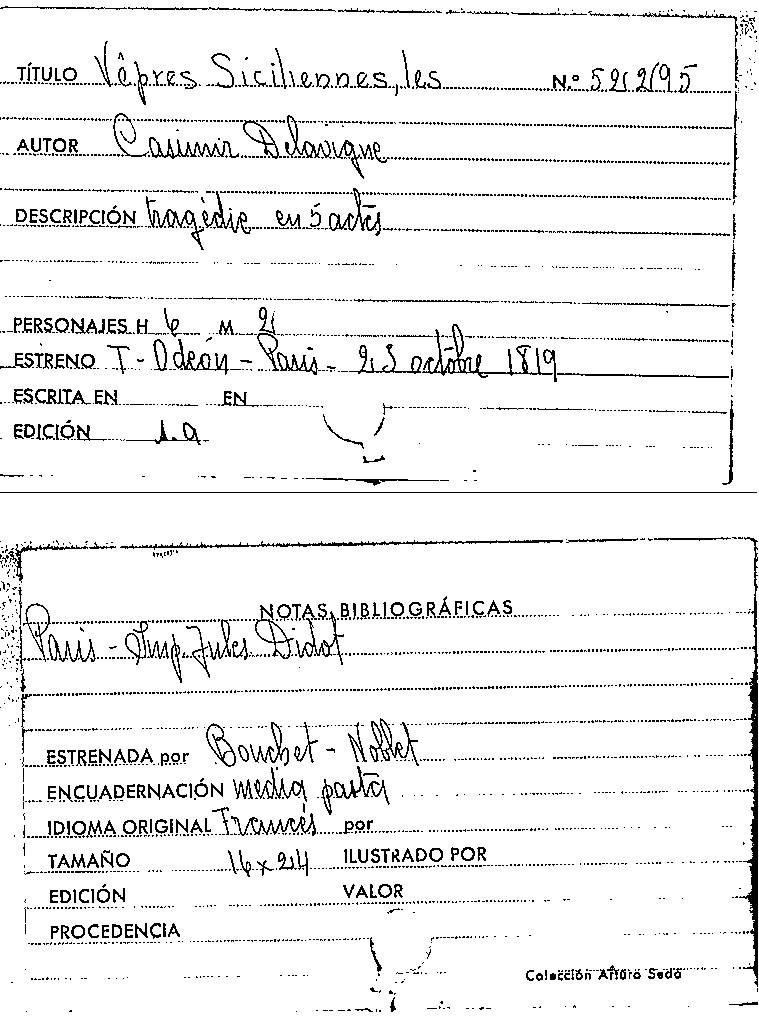 TÍTULO Vêpres Siciliennes, les N.º 52295
AUTOR Casimir Delavigne
DESCRIPCIÓN tragédie en 5 actes
PERSONAJES H 6 M 2
ESTRENO T - Odeón - Paris - 23 octobre 1819
ESCRITA EN EN
EDICIÓN 1.a
NOTAS BIBLIOGRÁFICAS
Paris - Imp. Jules Didot
ESTRENADA por Bouchet - Noblet
ENCUADERNACIÓN media pasta
IDIOMA ORIGINAL Francés por
TAMAÑO 16 x 24 ILUSTRADO POR
EDICIÓN VALOR
PROCEDENCIA
Colección Arturo Sedó